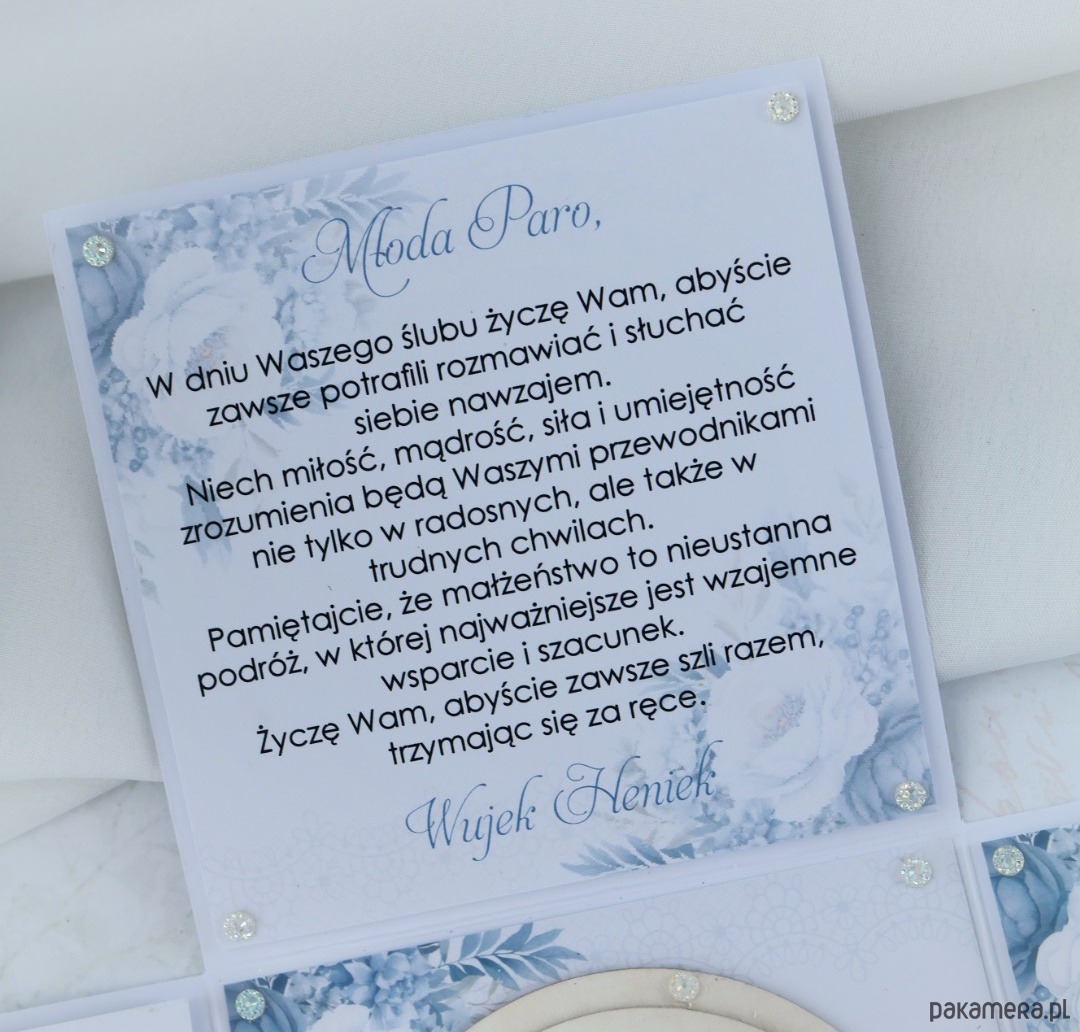 Młoda Paro,
W dniu Waszego ślubu życzę Wam, abyście
zawsze potrafili rozmawiać i słuchać
siebie nawzajem.
Niech miłość, mądrość, siła i umiejętność
zrozumienia będą Waszymi przewodnikami
nie tylko w radosnych, ale także w
trudnych chwilach.
Pamiętajcie, że małżeństwo to nieustanna
podróż, w której najważniejsze jest wzajemne
wsparcie i szacunek.
Życzę Wam, abyście zawsze szli razem,
trzymając się za ręce.
Wujek Heniek
pakamera.pl